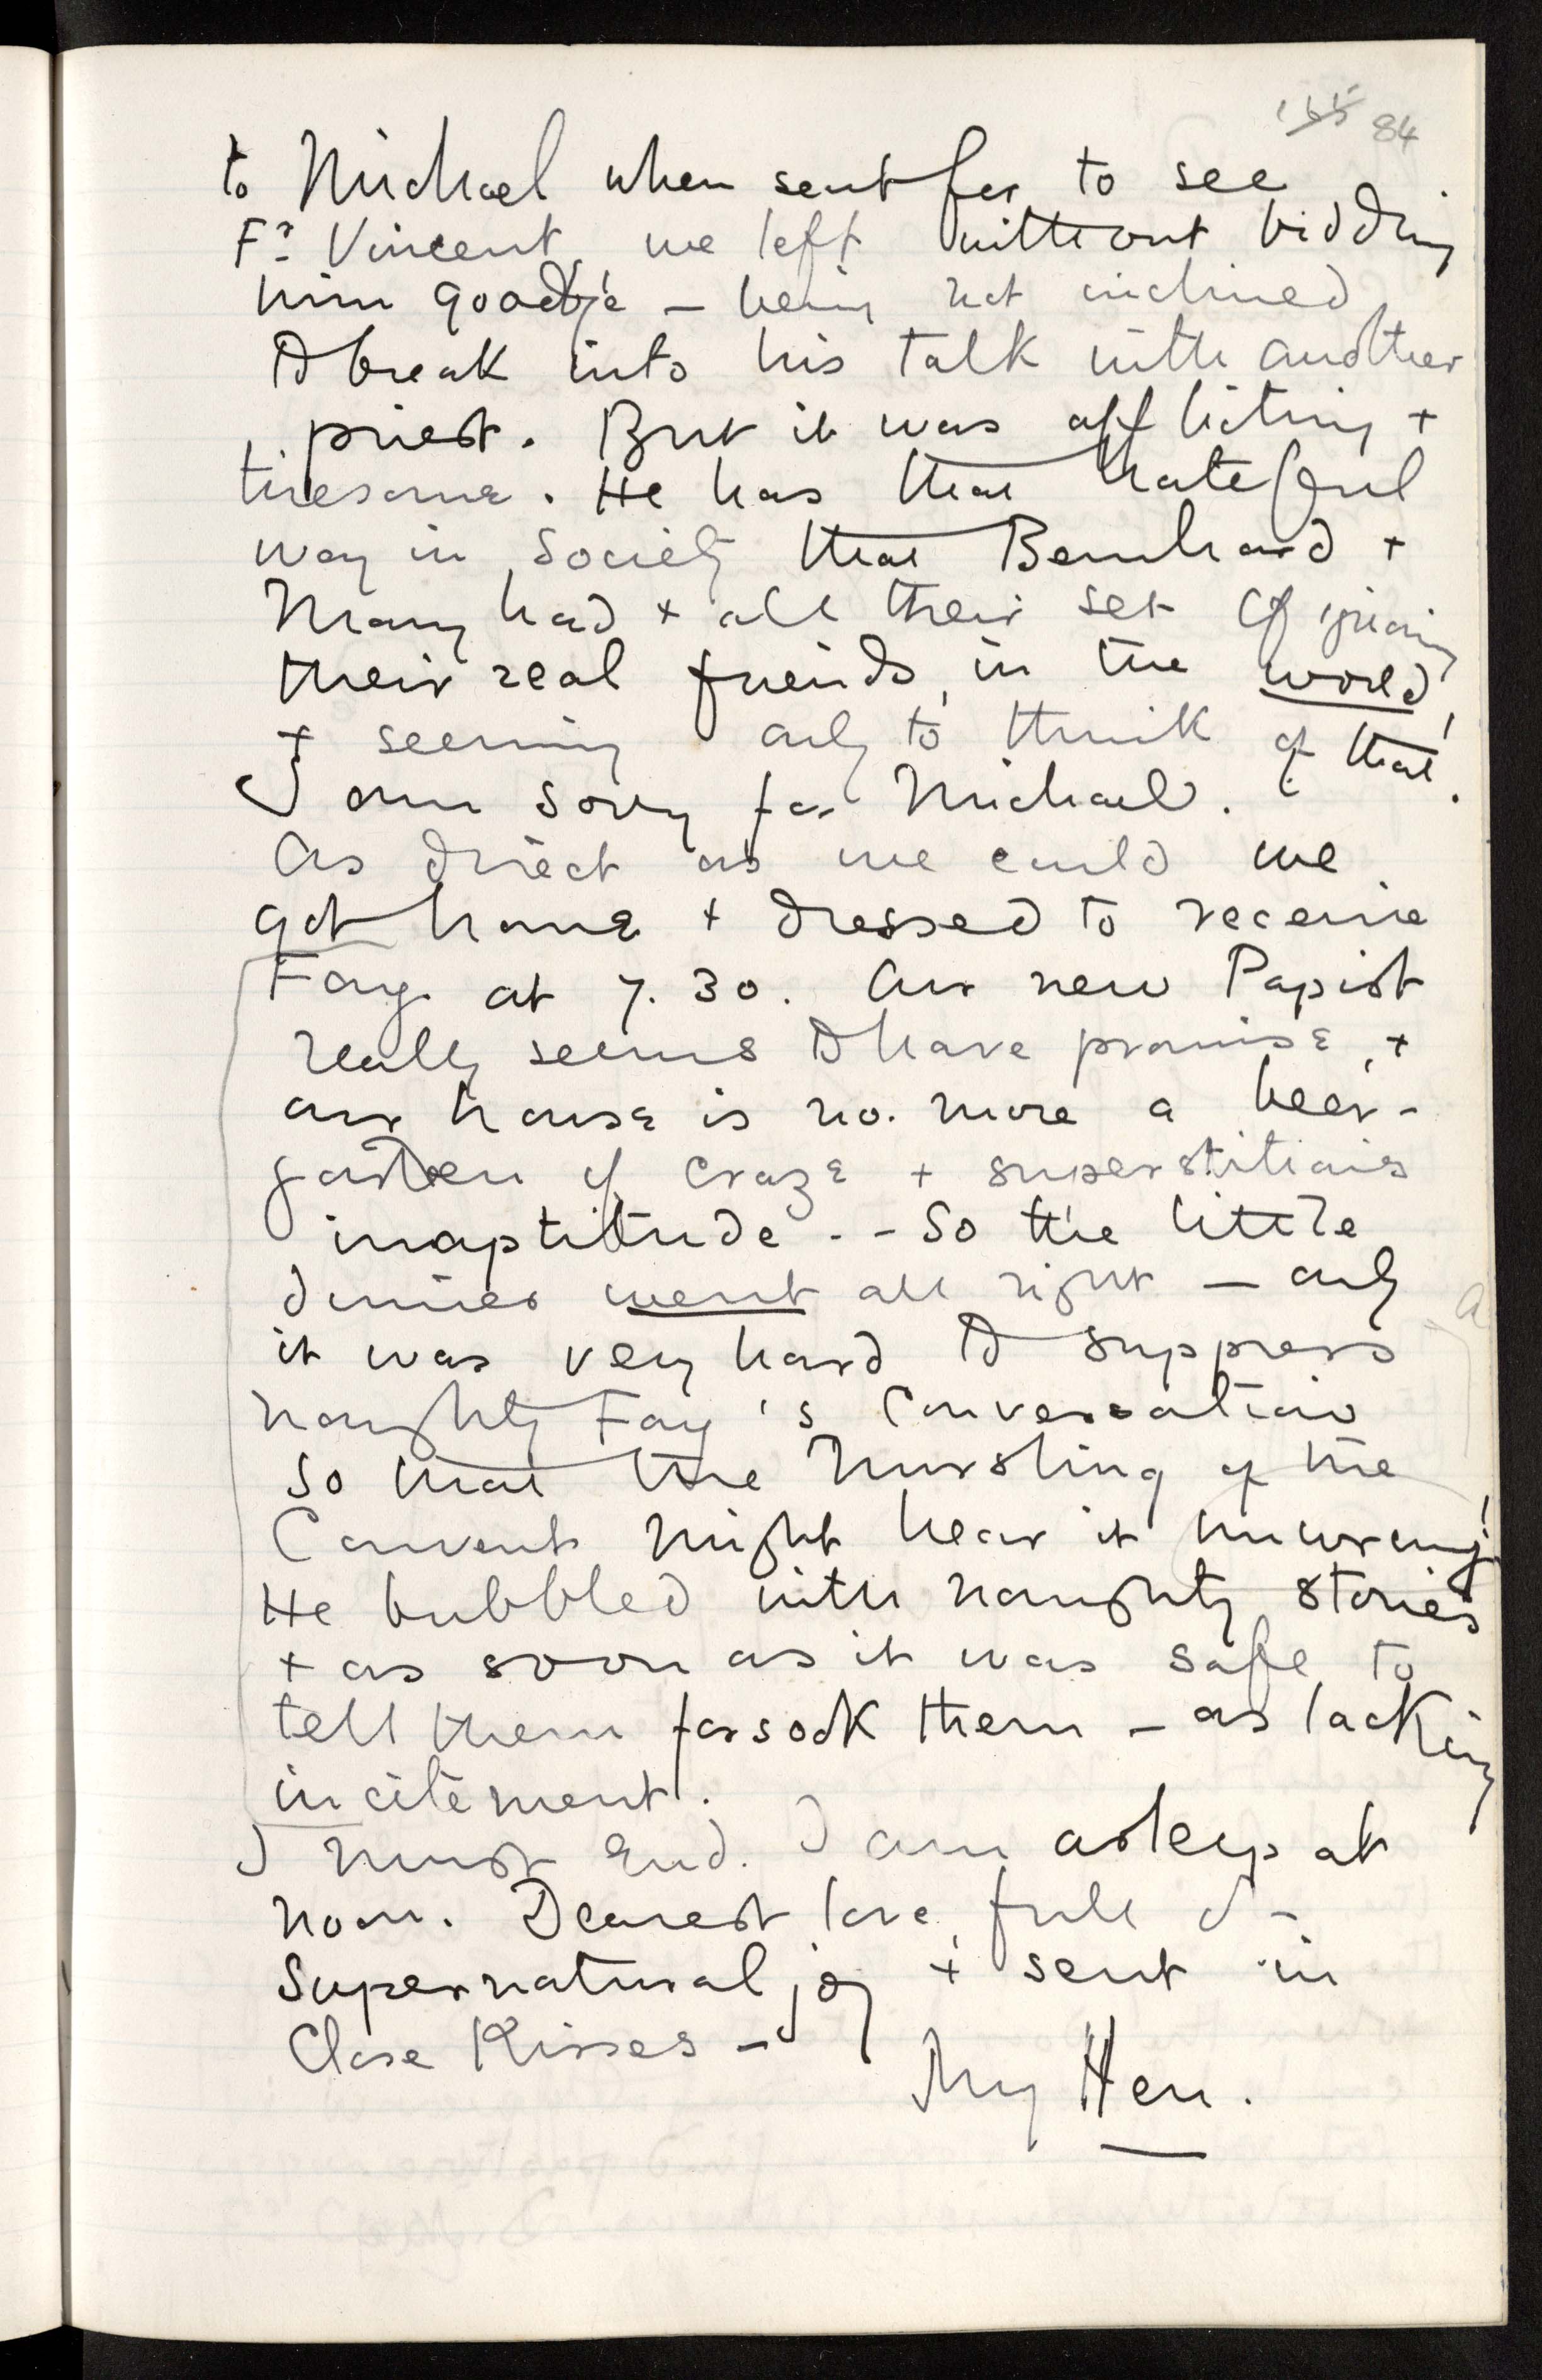 165 84
to Michael when sent for to see
Fr Vincent, we left without bidding
him goodbye – being not inclined
to break into his talk with another
priest. But it was afflicting +
tiresome. He has that hateful
way in Society that Bernhard +
Mary had + all their set of
their real friends, in the world,
+ seeming only to think of that.
I am sorry for Michael.
As direct as we could we
got home + dressed to receive
Fay at 7.30. Our new Papist
really seems to have promise, +
our house is no more a bear-
garden of craze + superstitious
inaptitude. - So the little
dinner went all right – only
it was very hard to suppress
naughty Fay's Conversation
so that the Nursling of the
Convent might hear it
He bubbled with naughty stories
+ as soon as it was safe to
tell them forsook them – as lacking
incitement.
I must end. I am asleep at
noon. Dearest love, full of
Supernatural joy + sent in
Close Kisses –
My Hen.